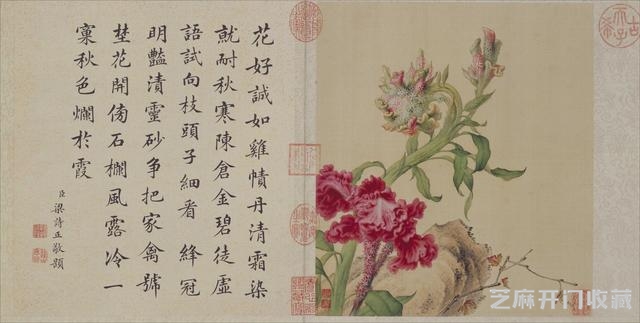 花好誠如雞幘丹清霜染
就耐秋寒陳倉金碧徒虛
語試向枝頭子細看 絳冠
明豔漬靈砂爭把家禽號
埜花開傍石欄風露冷一
窠秋色爛於霞
臣梁詩正敬題
古希天子
芝麻开门收藏